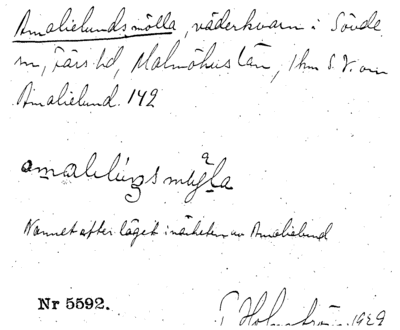 Amalielunds mölla, väderkvarn i Sövde
sn, Färs hd, Malmöhus län, 1 km S.V. om
Amalielund. 142
Namnet efter läget i närheten av Amalielund
Nr 5592.
1929